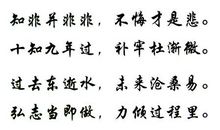 知非并非非，不悔才是悲。
十知九年过，补牢杜渐微。
过去东逝水，未来沧桑易。
弘志当即做，力倾过程里。